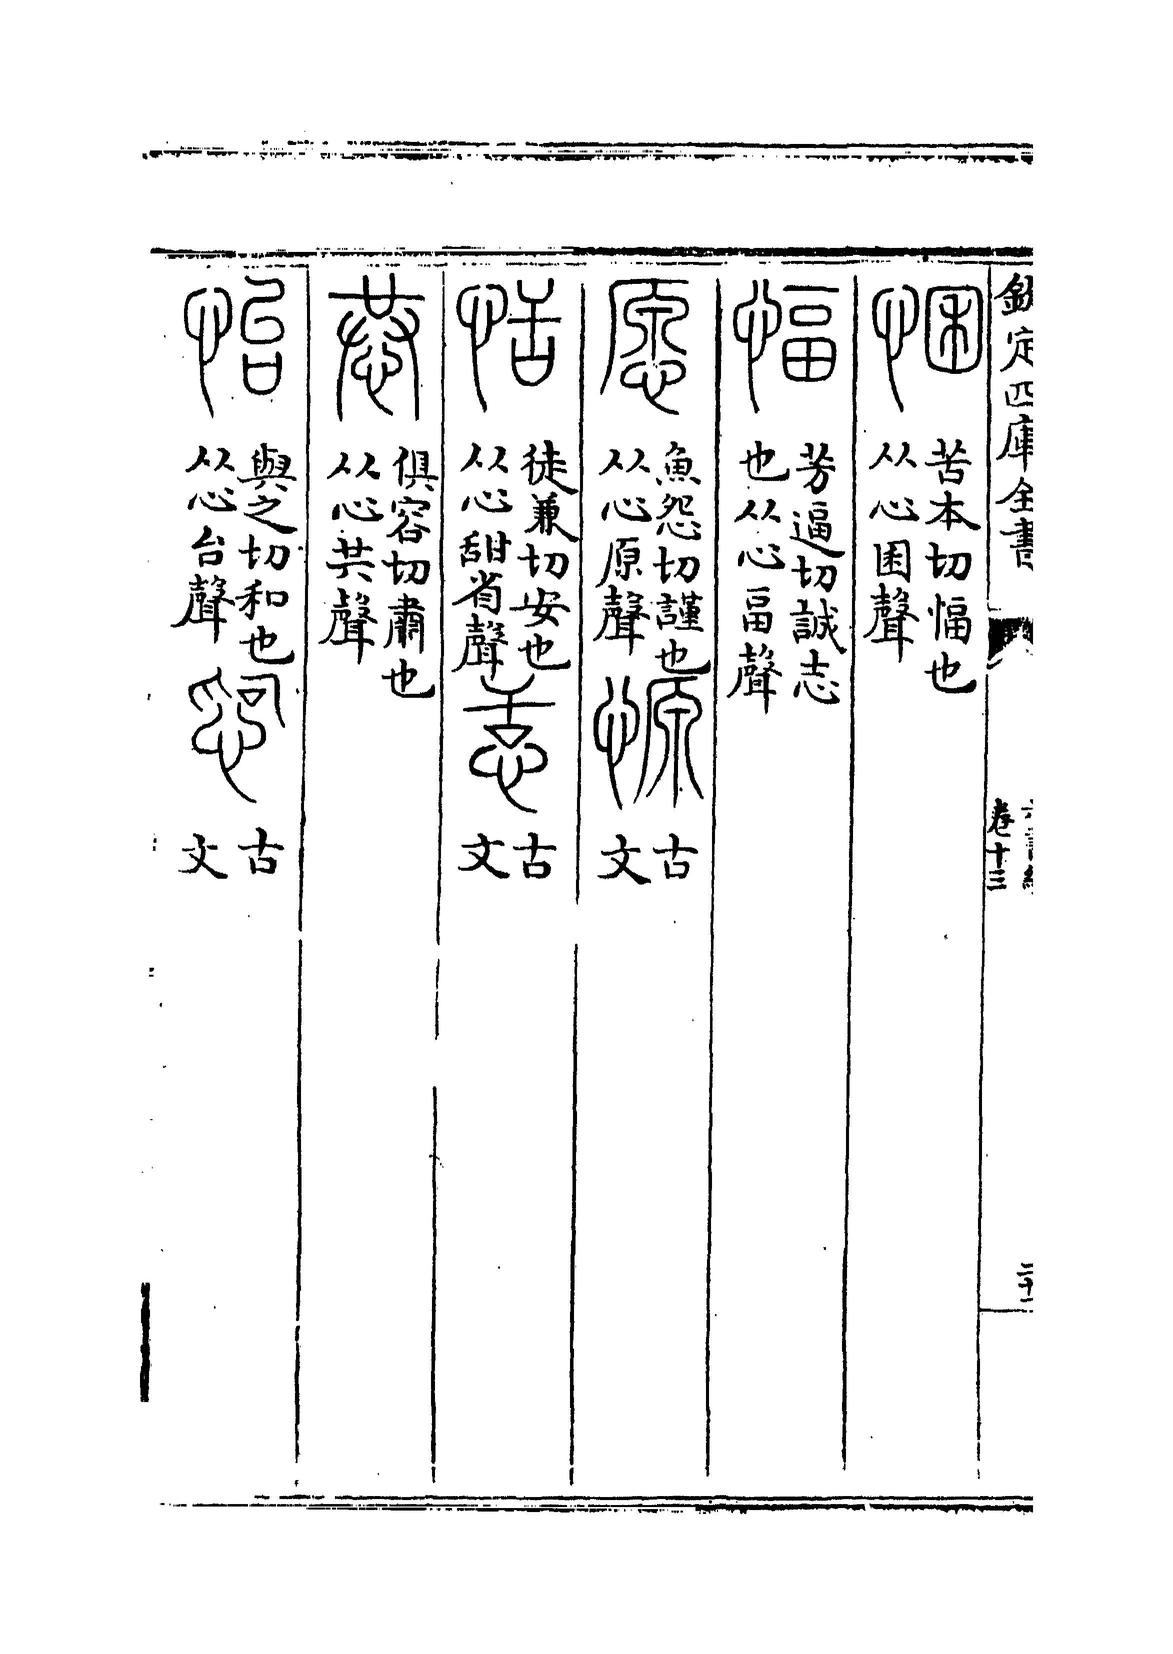 欽定四庫全書
卷十三
悃 苦本切悃也从心困聲
愊 芳逼切誠志也从心畐聲
愿 魚怨切謹也从心原聲 𢟮 古文
恬 徒兼切安也从心甜省聲 古文
恭 俱容切肅也从心共聲
怡 與之切和也从心台聲 古文